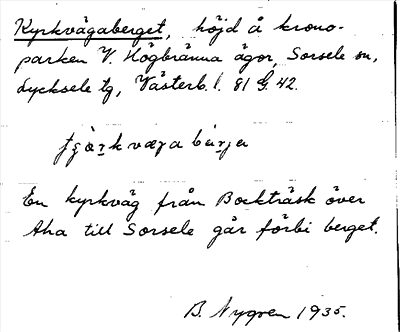 Kyrkvägaberget, höjd å krono-
parken V. Högbränna ägor, Sorsele sn,
Lycksele tg, Västerb. l. 81 G. 42.
En kyrkväg från Bockträsk över
Aha till Sorsele går förbi berget.
B. Nygren 1935.